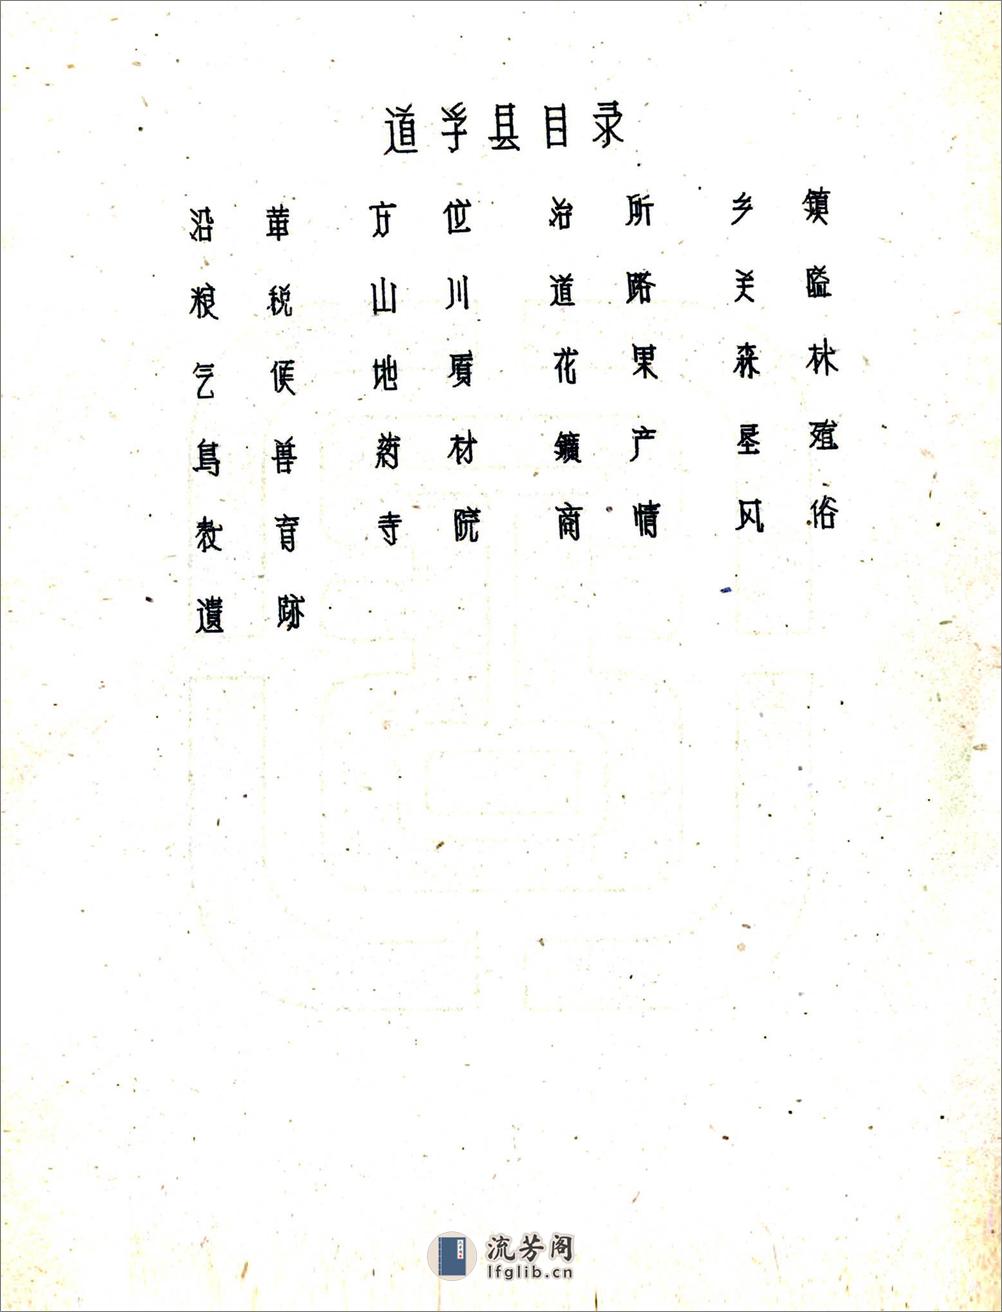 道孚县目录
沿革 方位 治所 乡镇
粮税 山川 道路 关隘
气候 地质 花果 森林
鳥兽 药材 鑛产 垦殖
教育 寺院 商情 风俗
遺跡
流芳阁
lfglib.cn